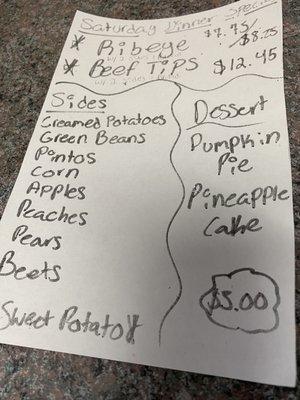 Saturday Dinner Special
* Ribeye $7.75/$8.25
* Beef Tips $12.45
Sides
Creamed Potatoes
Green Beans
Pintos
Corn
Apples
Peaches
Pears
Beets
Sweet Potato
Dessert
Pumpkin
Pie
Pineapple
Cake
$5.00